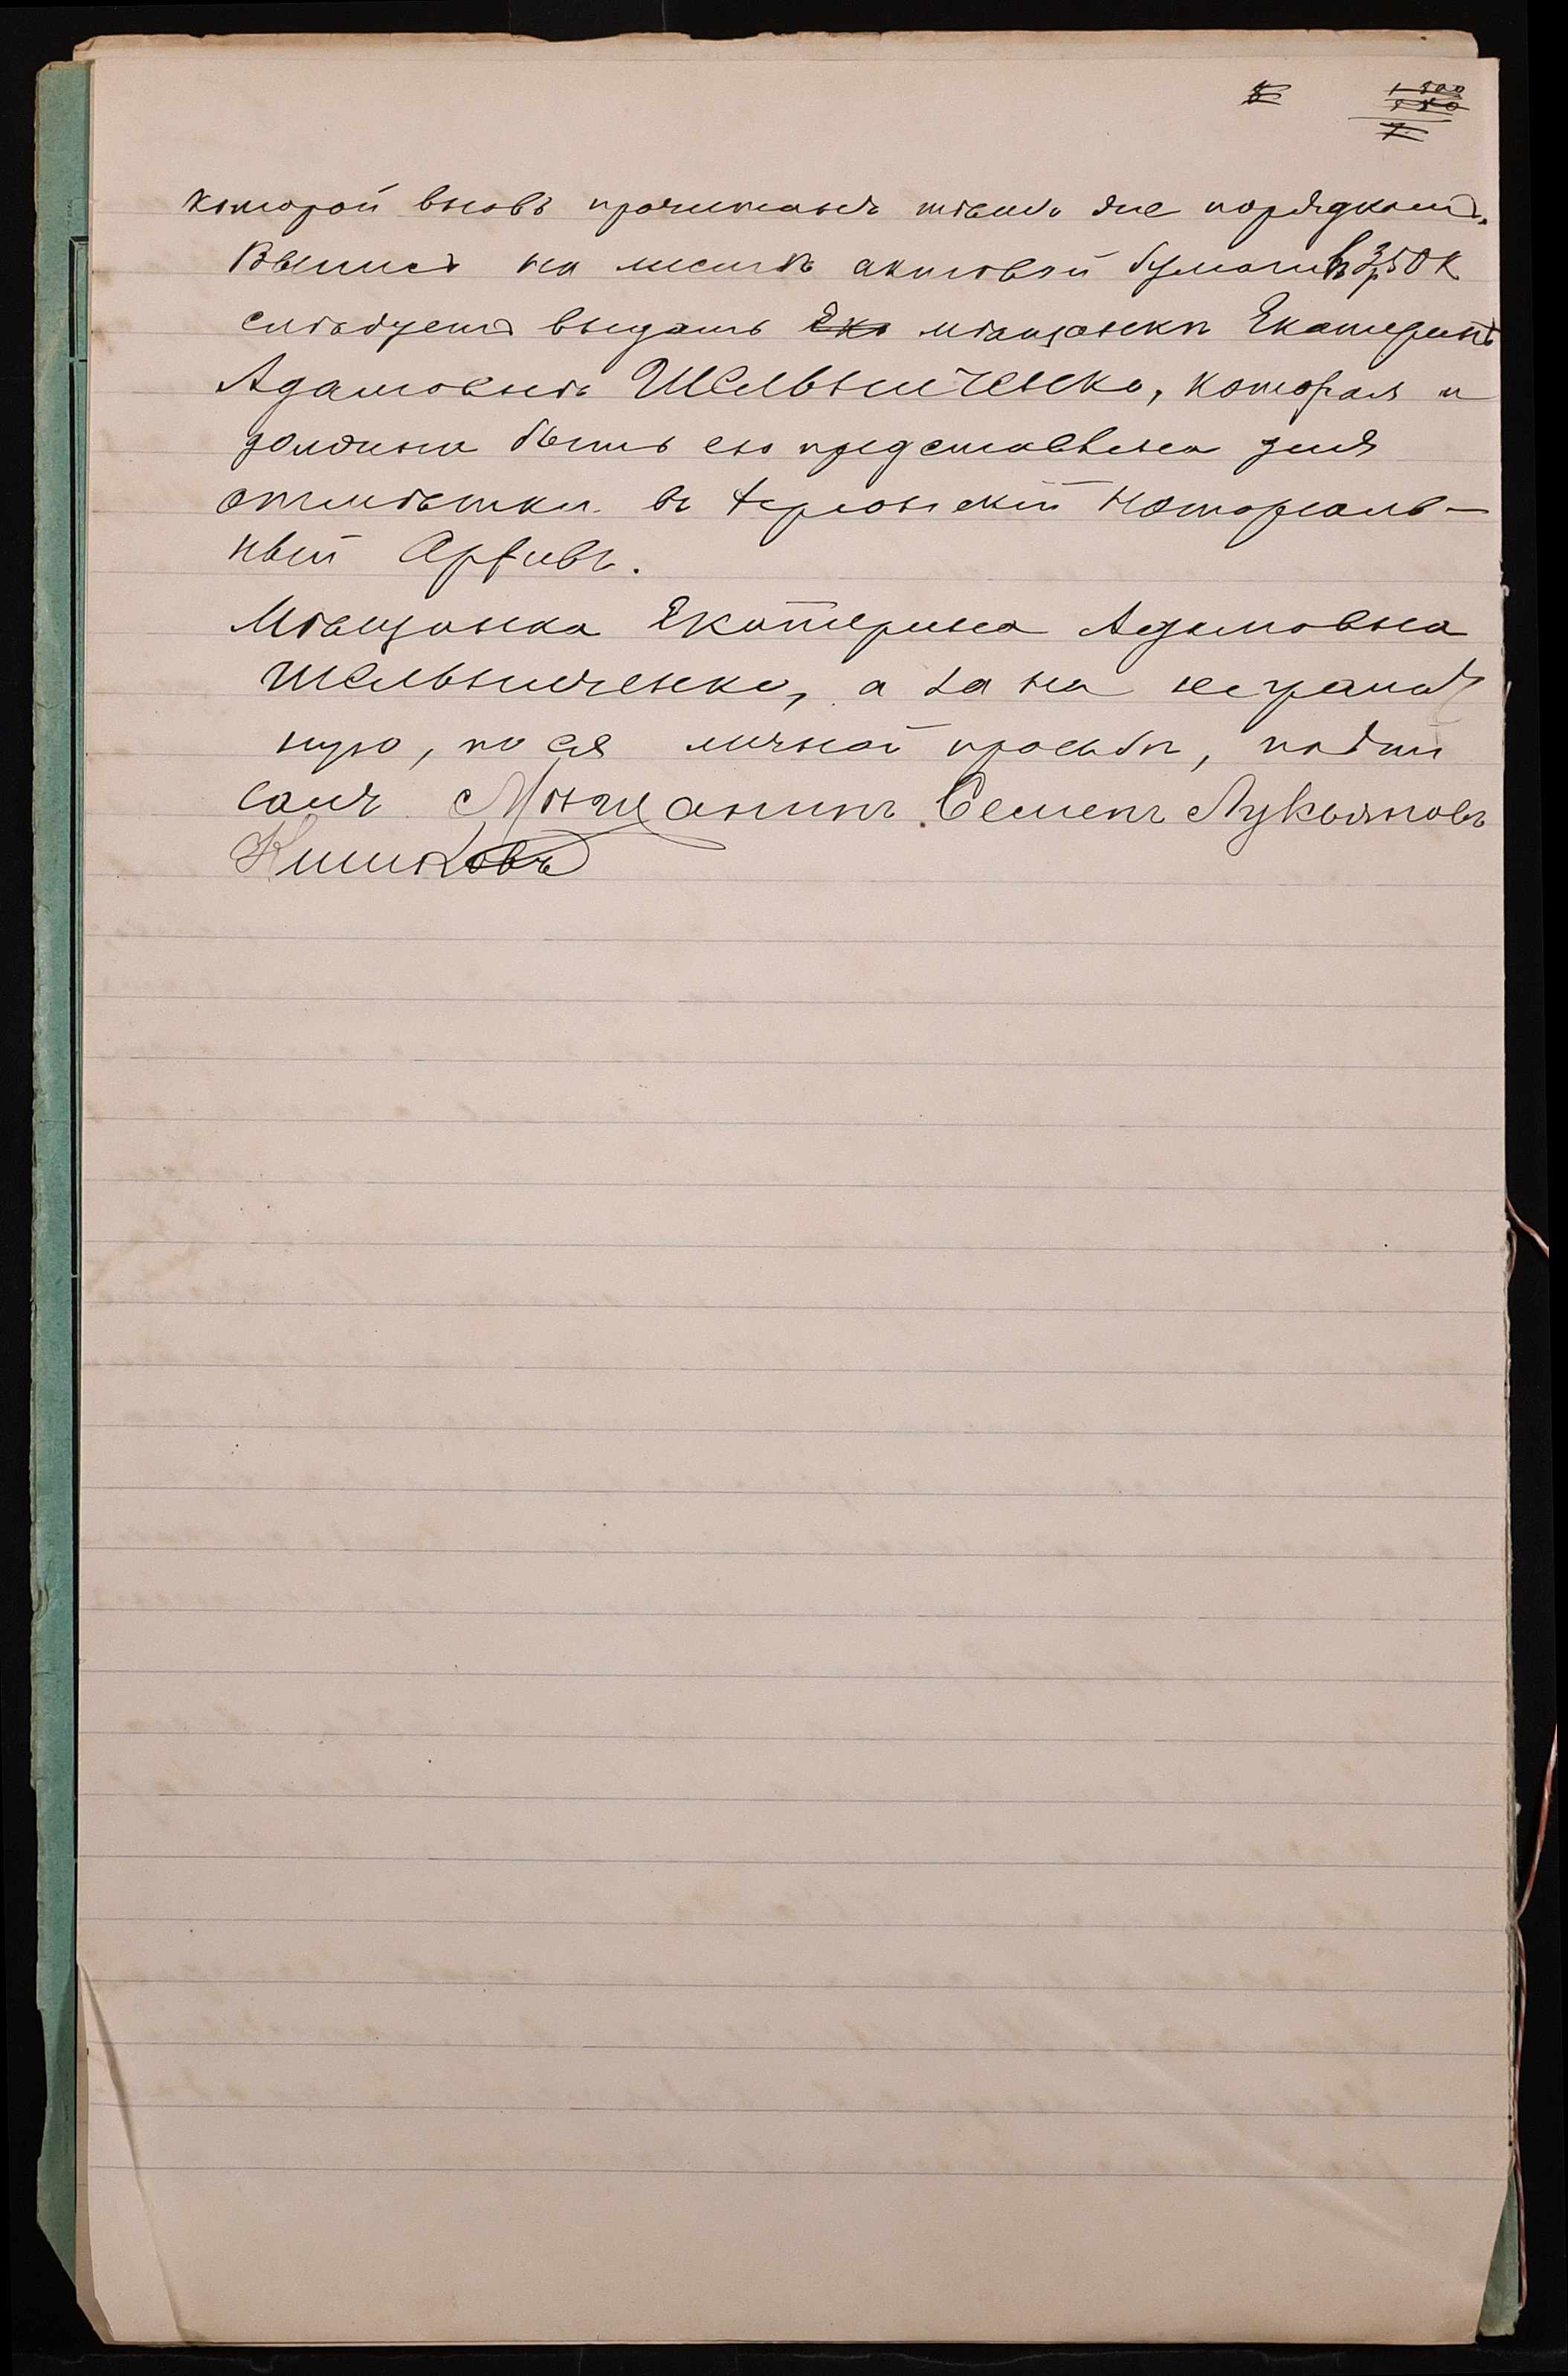 5 1 500
5 50
7.
которой вновь прочитанъ тѣмъ же порядкомъ.
Выпись на листѣ актовой бумаги въ 3р50к
слѣдуетъ выдать Ека мѣщанкѣ Екатеринѣ
Адамовнѣ Шельниченко, которая и
должна быть ею представлена для
отмѣтки въ Херсонскій Нотаріаль-
ный Архивъ.
Мѣщанка Екатерина Адамовна
Шельниченко, а за нея неграмот
ную, по ея личной просьбѣ, подпи
салъ Мѣщанинъ Семенъ Лукьяновъ